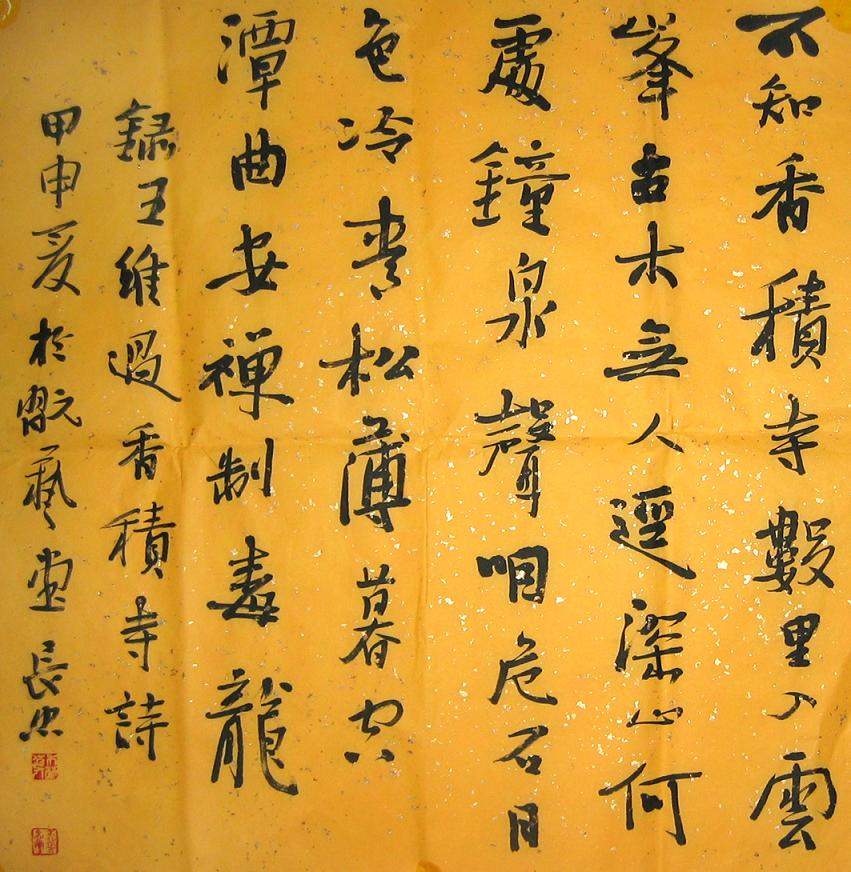 不知香積寺數里入雲
峰古木無人逕深山何
處鐘泉聲咽危石日
色冷青松薄暮空
潭曲安禪制毒龍
錄王維過香積寺詩
甲申夏於藝堂長